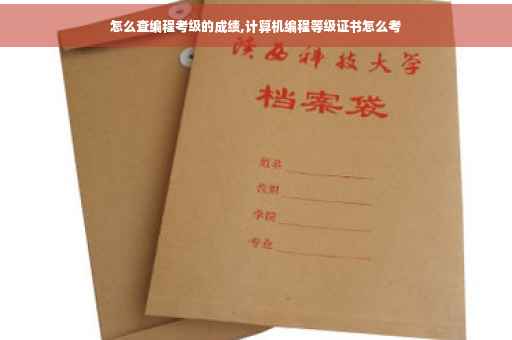 怎么查编程考级的成绩,计算机编程等级证书怎么考
陕西科技大学
档案袋
姓名
班级
学院
专业